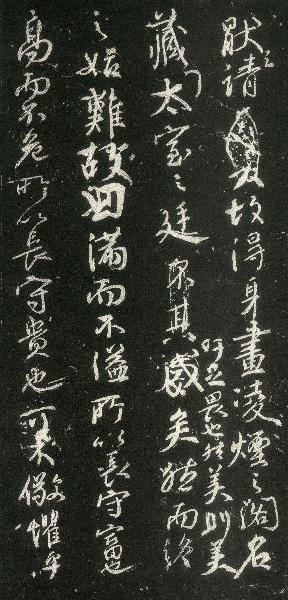 厭之請故得身畫凌煙之閣名
藏太室之廷吁足畏也然美則美矣然而終
之始難故曰滿而不溢所以長守富也
高而不危所以長守貴也可不儆懼乎